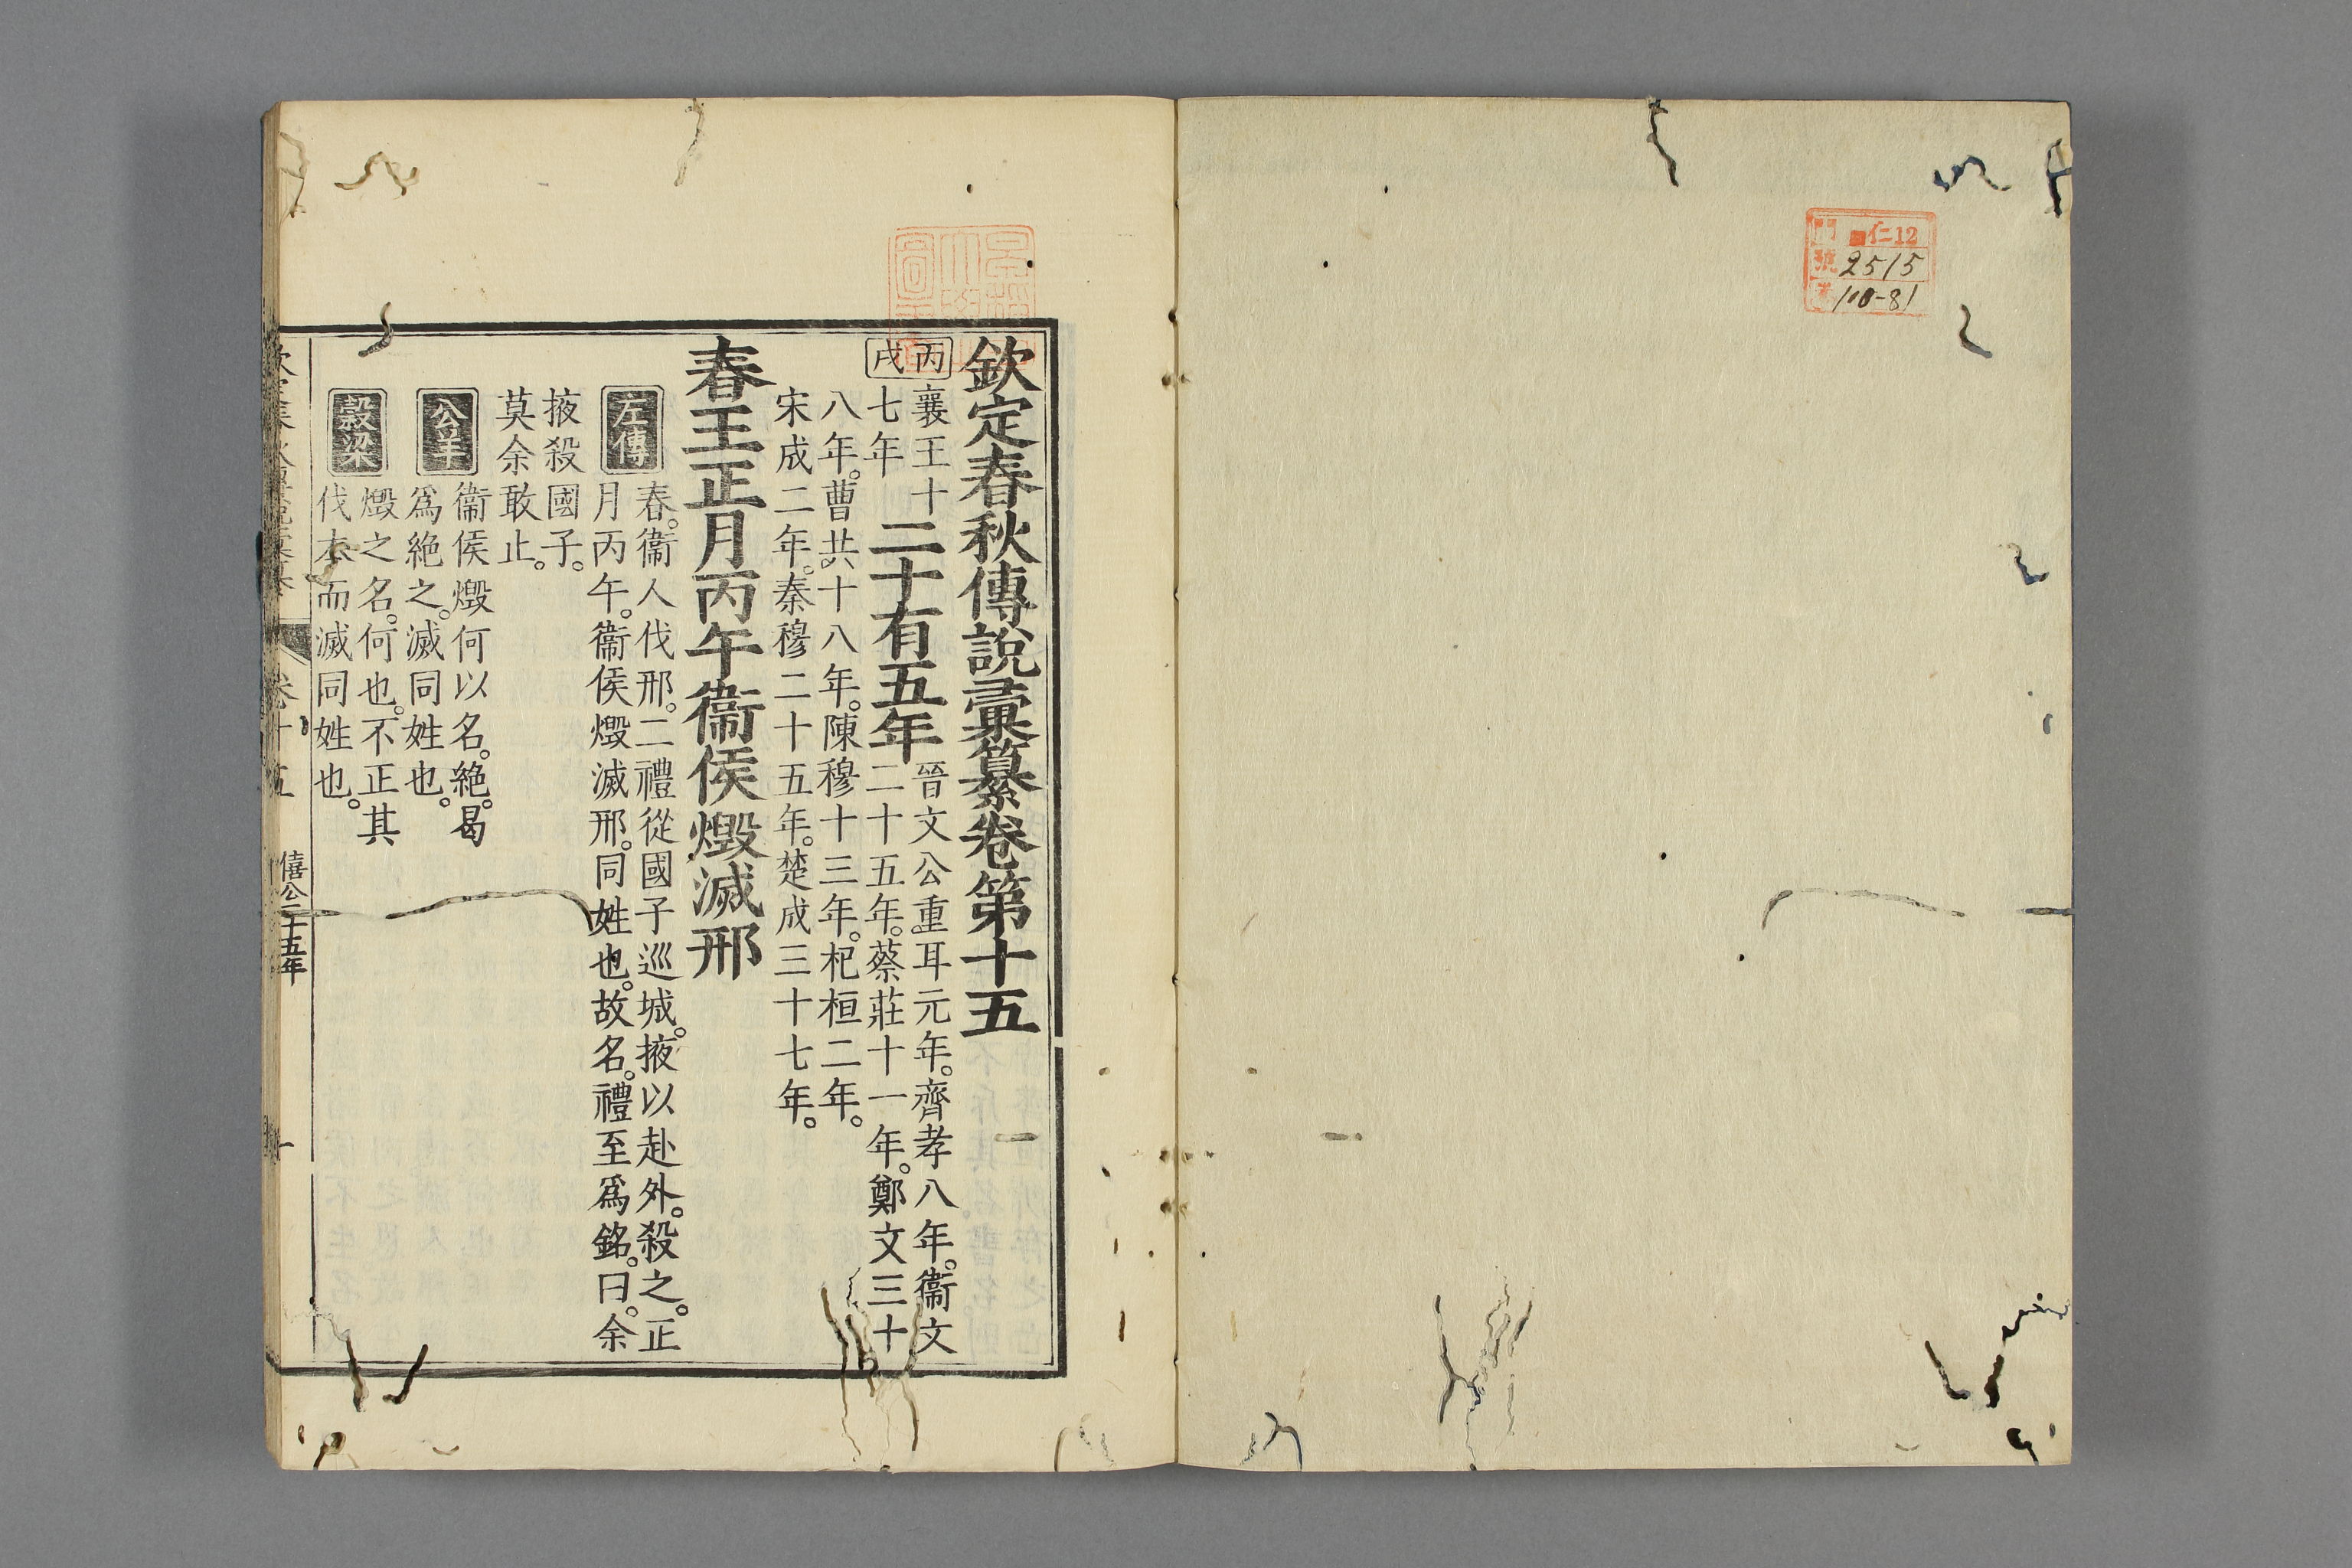 門 仁12
號 2515
108-81
欽定春秋傳說彙纂卷第十五
丙戌 襄王十七年 二十有五年 晉文公重耳元年。齊孝八年。衞文二十五年。蔡莊十一年。鄭文三十
八年。曹共十八年。陳穆十三年。杞桓二年。
宋成二年。秦穆二十五年。楚成三十七年。
春王正月丙午衞侯燬滅邢
左傳 春。衞人伐邢。二禮從國子巡城。掖以赴外。殺之。正
月丙午。衞侯燬滅邢。同姓也。故名。禮至爲銘。曰。余
掖殺國子。
莫余敢止。
公羊 衞侯燬何以名。絶。曷
爲絶之。滅同姓也。
穀梁 燬之名。何也。不正其
伐本而滅同姓也。
卷十五 僖公二十五年